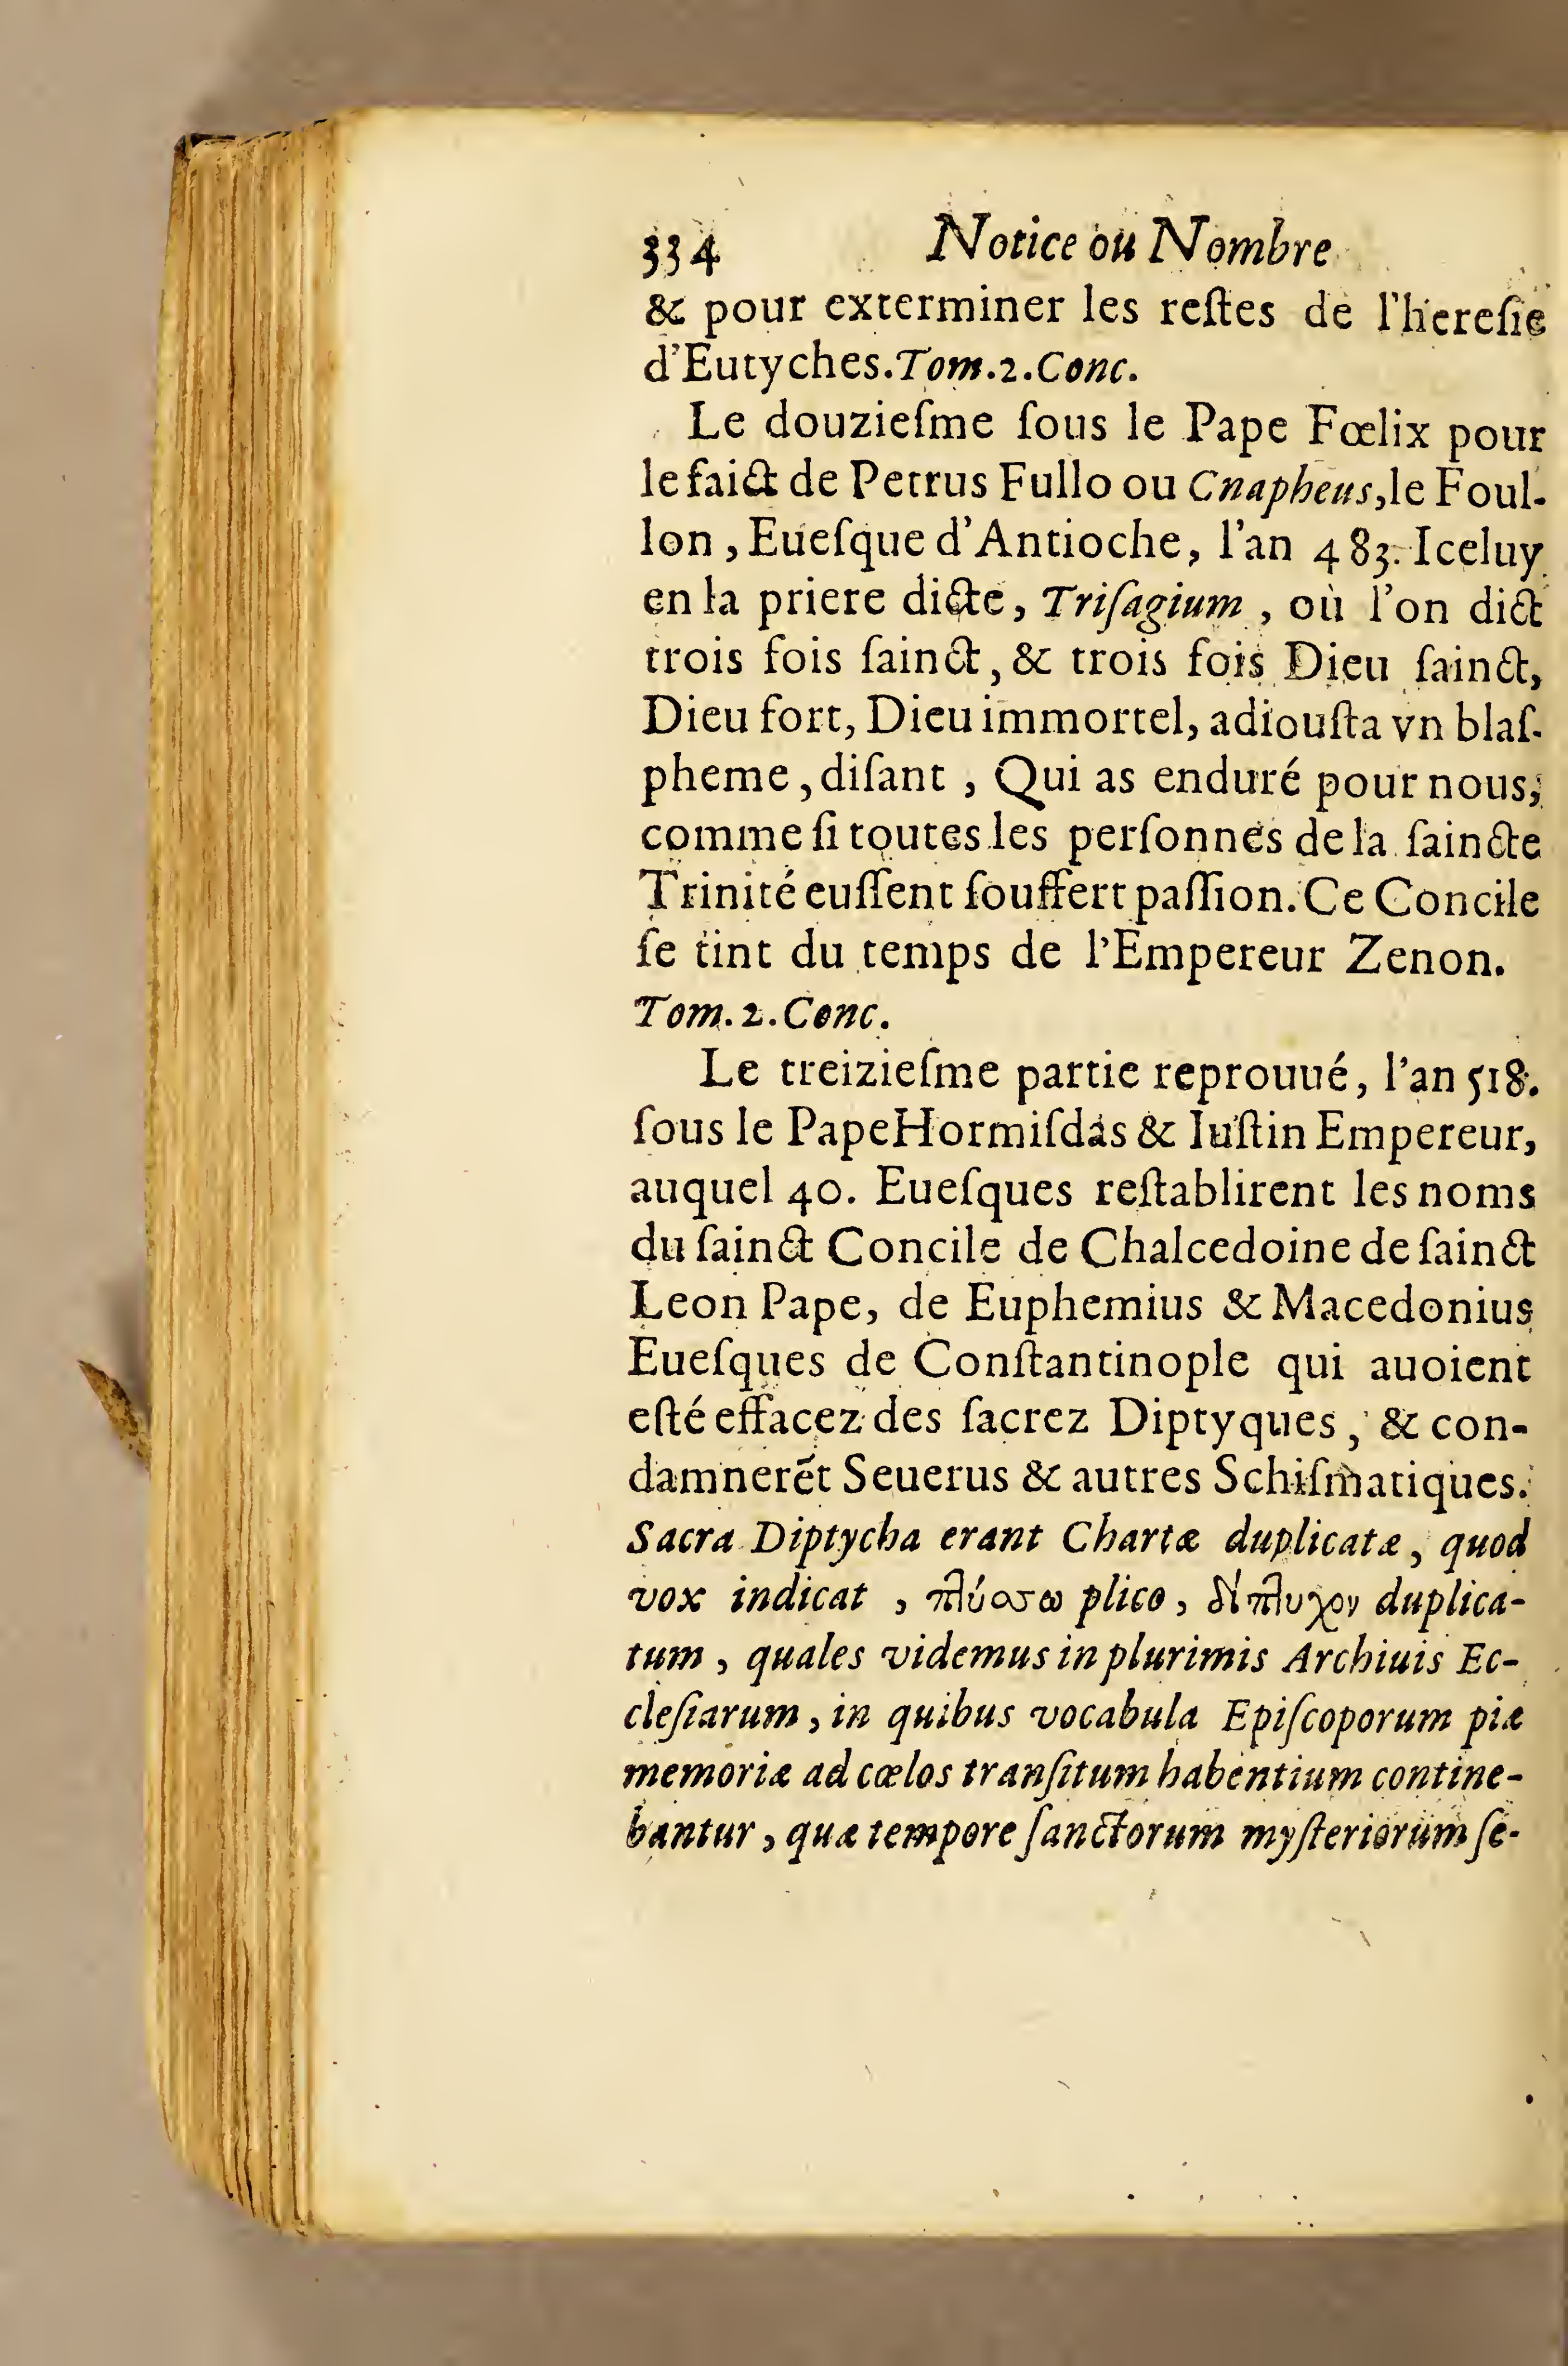 334 Notice ou Nombre
& pour exterminer les reſtes de l'hereſie
d'Eutyches.Tom.2.Conc.
Le douzieſme ſous le Pape Fœlix pour
le faict de Petrus Fullo ou Cnapheus,le Foul-
lon , Eueſque d'Antioche, l'an 483. Iceluy
en la priere dicte, Triſagium , où l'on dict
trois fois ſainct, & trois fois Dieu ſainct,
Dieu fort, Dieu immortel, adiouſta vn blaſ-
pheme , diſant , Qui as enduré pour nous,
comme ſi toutes les perſonnes de la ſaincte
Trinité euſſent ſouffert paſſion. Ce Concile
ſe tint du temps de l'Empereur Zenon.
Tom. 2. Conc.
Le treizieſme partie reprouué, l'an 518.
ſous le Pape Hormiſdas & Iuſtin Empereur,
auquel 40. Eueſques reſtablirent les noms
du ſainct Concile de Chalcedoine de ſainct
Leon Pape, de Euphemius & Macedonius
Eueſques de Conſtantinople qui auoient
eſté effacez des ſacrez Diptyques , & con-
damnerẽt Seuerus & autres Schiſmatiques.
Sacra Diptycha erant Chartæ duplicatæ , quod
vox indicat , πλύσσω plico , δίπλυχον duplica-
tum , quales videmus in plurimis Archiuis Ec-
cleſiarum , in quibus vocabula Epiſcoporum piæ
memoriæ ad cœlos tranſitum habentium contine-
bantur , quæ tempore ſanctorum myſteriorum ſe-